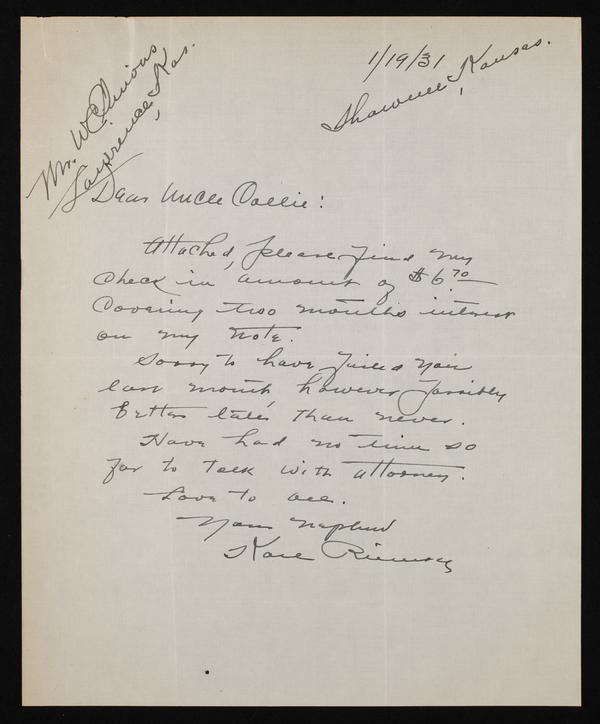 1/19/31
Shawnee, Kansas.
Mr. W.C. Simons
Lawrence, Kas.
Dear Uncle Dollie:
Attached, please find my
check in amount of $6.70
Covering two months interest
on my note.
Sorry to have failed you
last month however possibly
better late than never.
Have had no time so
far to talk with attorney.
Love to all.
Your Nephew
Karl